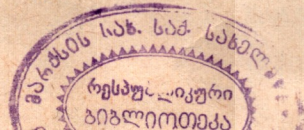 მარქსის სახ. საქ. სახელ
რესპუბლიკური
ბიბლიოთეკა